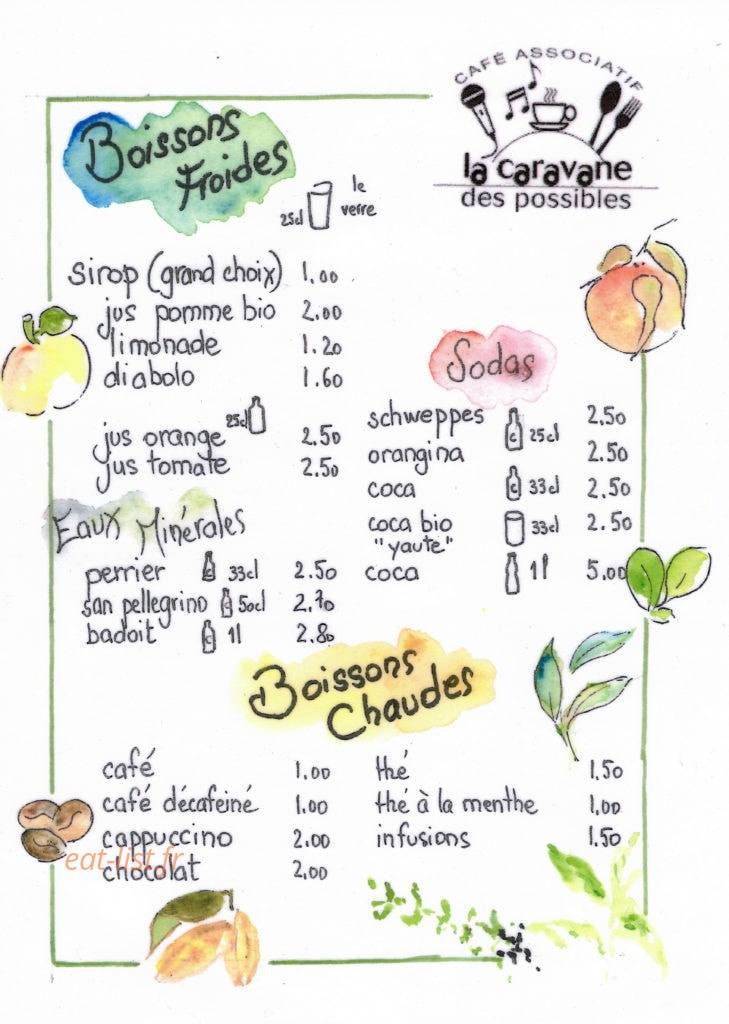 CAFÉ ASSOCIATIF
la caravane
des possibles
Boissons
Froides
25cl le
verre
sirop (grand choix) 1.00
jus pomme bio 2.00
limonade 1.20
diabolo 1.60
25cl
jus orange 2.50
jus tomate 2.50
Eaux Minérales
perrier 33cl 2.50
san pellegrino 50cl 2.70
badoit 1l 2.80
Sodas
schweppes 25cl 2.50
orangina 2.50
coca 33cl 2.50
coca bio 33cl 2.50
"yaute"
coca 1l 5.00
Boissons
Chaudes
café 1.00
café décafeiné 1.00
cappuccino 2.00
chocolat 2.00
thé 1.50
thé à la menthe 1.00
infusions 1.50
eat-list.fr